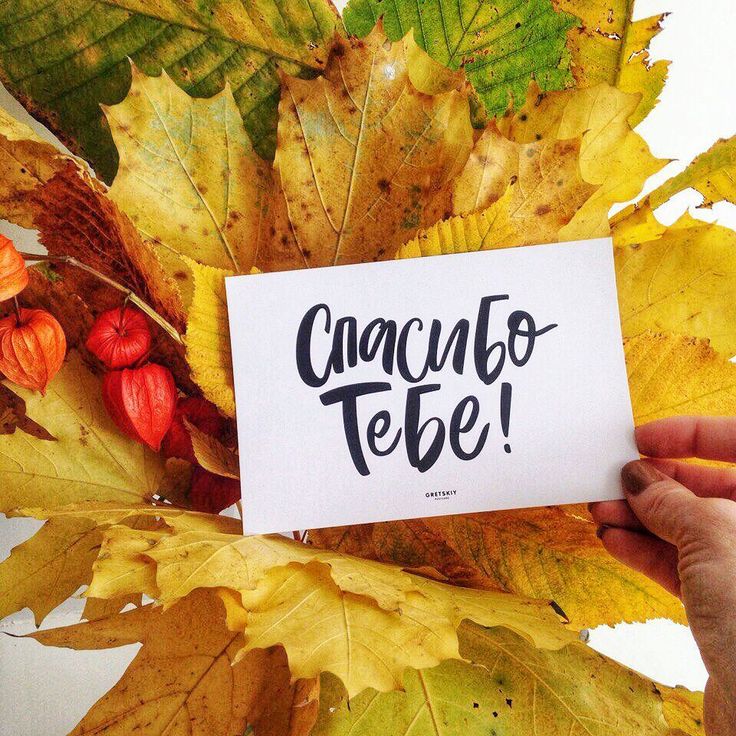 Спасибо
Тебе!
GRETSKIY